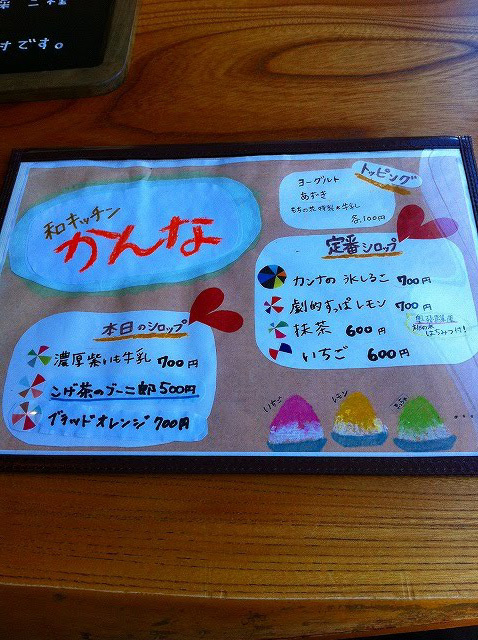 チです。
和キッチン
かんな
トッピング
ヨーグルト
あずき
各100円
定番シロップ
カンナの氷しるこ 700円
劇的すっぱレモン 700円
はちみつ付!
抹茶 600円
いちご 600円
本日のシロップ
濃厚紫いも牛乳 700円
こげ茶のブーニ郎 500円
ブラッドオレンジ 700円
いちご
レモン